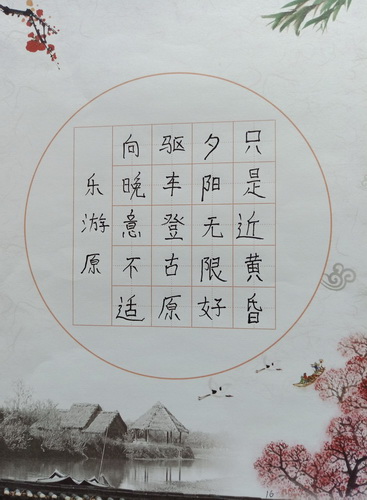 乐游原
向晚意不适
驱车登古原
夕阳无限好
只是近黄昏
16